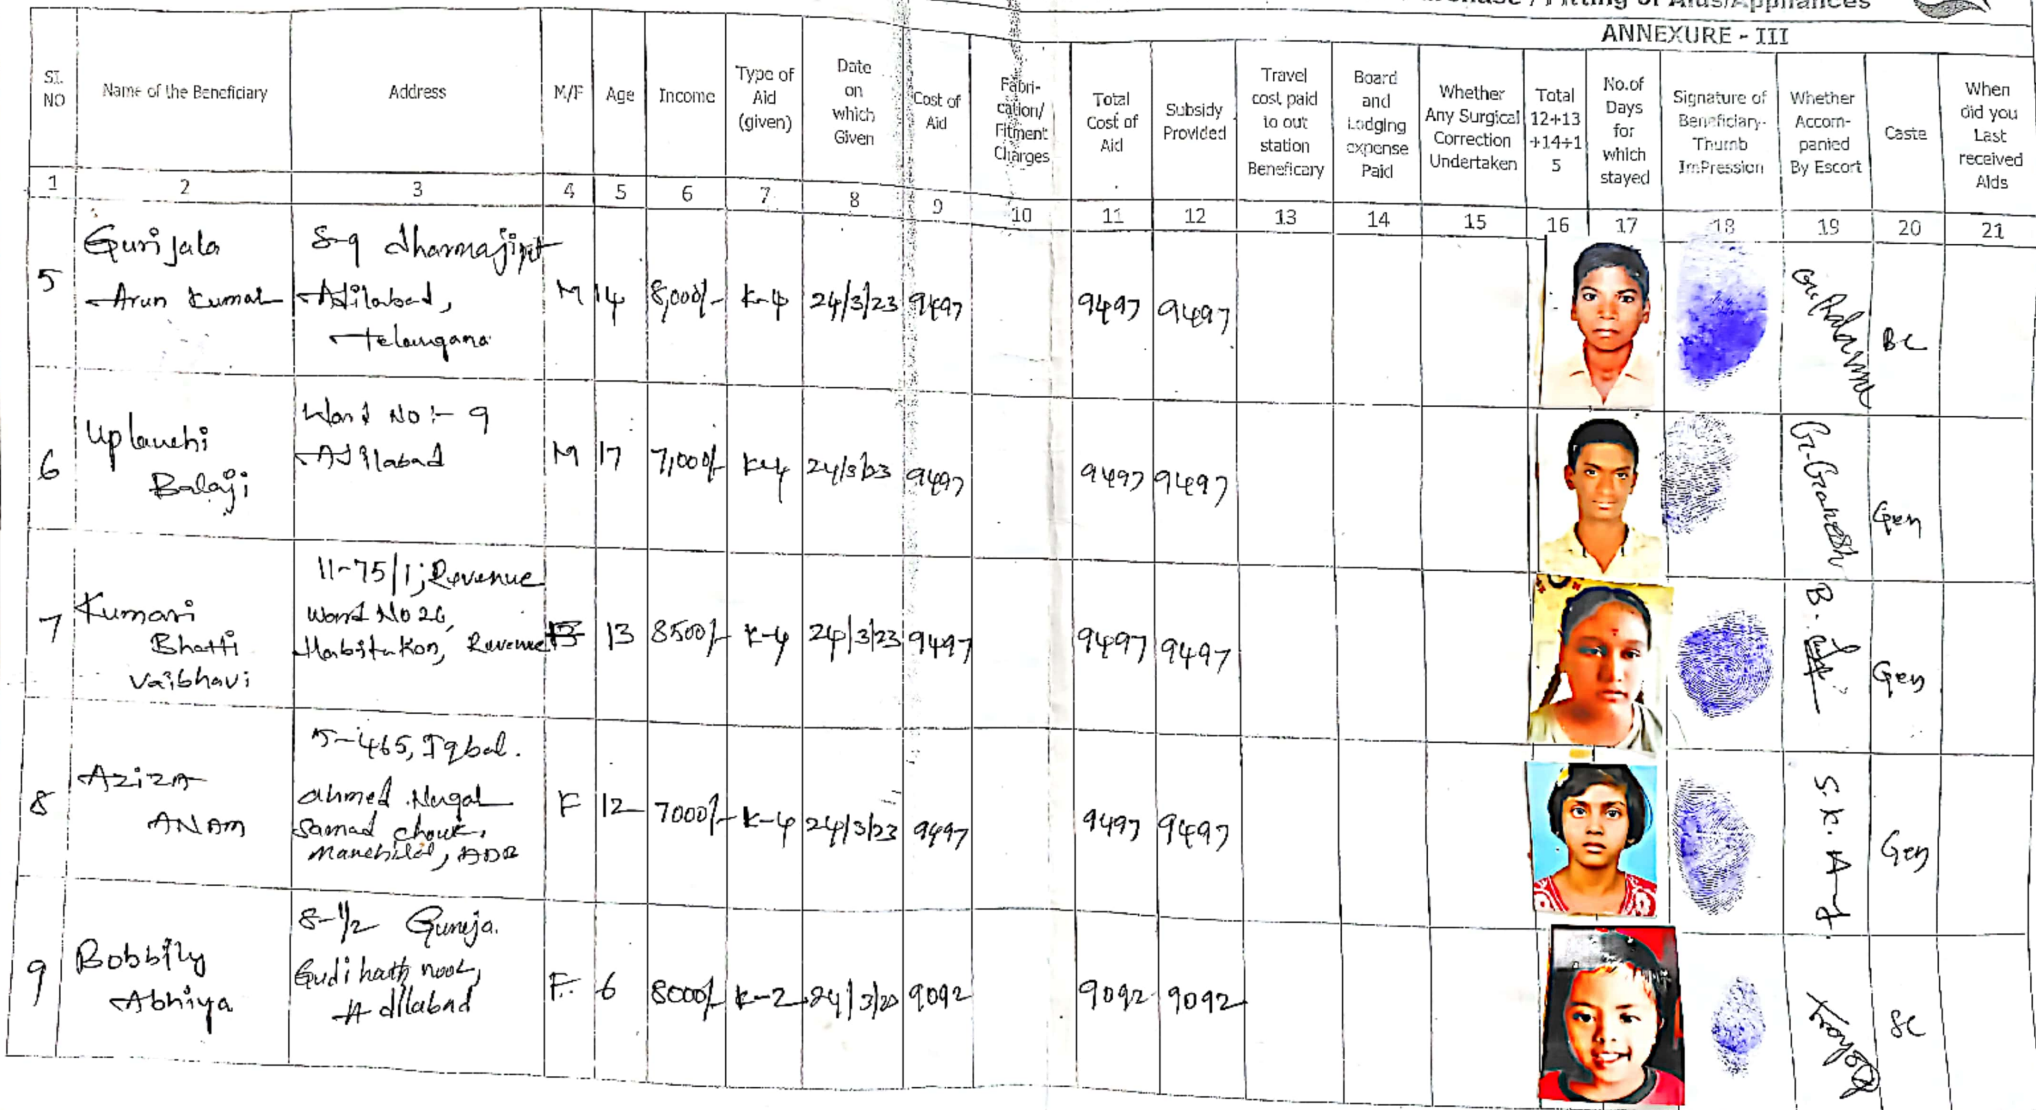 Fitting of Aids/Appliances
ANNEXURE - III
SI. NO
Name of the Beneficiary
Address
M/F
Age
Income
Type of Aid (given)
Date on which Given
Cost of Aid
Fabri-cation/ Fitment Charges
Total Cost of Aid
Subsidy Provided
Travel cost paid to out station Beneficary
Board and Lodging expense Paid
Whether Any Surgical Correction Undertaken
Total 12+13 +14+1 5
No.of Days for which stayed
Signature of Beneficiary- Thumb ImPression
Whether Accom-panied By Escort
Caste
When did you Last received Aids
1 2 3 4 5 6 7 8 9 10 11 12 13 14 15 16 17 18 19 20 21
5
Gurijala
Arun Kumar
8-9
Adilabad,
Telangana
M 14 8,000/- K-4 24/3/23 9497 9497 9497
BC
6
Balaji
Ward No:- 9
Adilabad
M 17 7,000/- K-4 24/3/23 9497 9497 9497
G. Ganesh
Gen
7
Kumari
Bhatti
Vaibhavi
11-75/1, Revenue
Ward No 26,
Habitation, Revenue
13 8500/- K-4 24/3/23 9497 9497 9497
B.
Gen
8
Aziza
ANAM
5-465, Iqbal.
ahmed Nagar
Samad chowk,
ADB
F 12 7000/- K-4 24/3/23 9497 9497 9497
S.K.A
Gen
9
Bobbily
Abhiya
8-1/2
Gudihathnoor,
Adilabad
F. 6 8000/- K-2 9092 9092 9092
SC